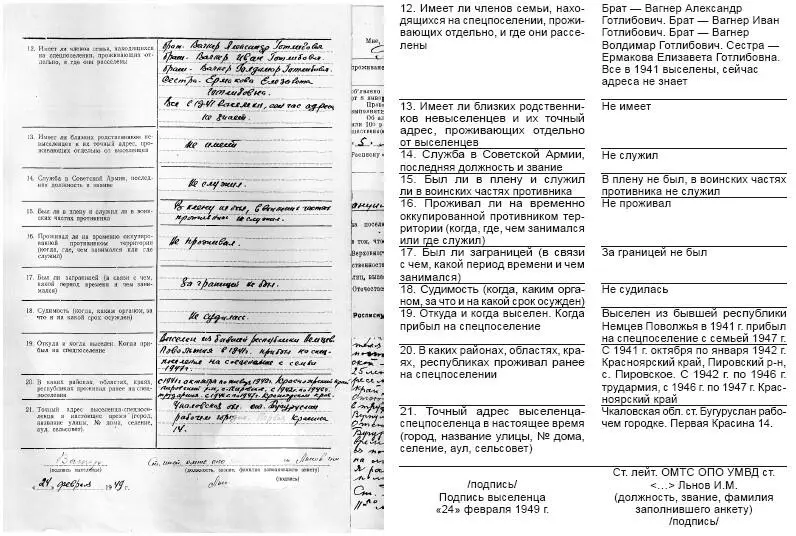 12. Имеет ли членов семьи, находящихся
на спецпоселении, проживающих от-
дельно, и где они расселены
брат. Вагнер Александр Готлибович.
брат. Вагнер Иван Готлибович.
брат. Вагнер Волдимар Готлибович.
Сестра. Ермакова Елизовета
Готлибовна.
Все в 1941 выселены, сейчас адреса
не знает.
13. Имеет ли близких родственников не-
выселенцев и их точный адрес, про-
живающих отдельно от выселенцев
Не имеет
14. Служба в Советской Армии, послед-
няя должность и звание
Не служил.
15. Был ли в плену и служил ли в воин-
ских частях противника
В плену не был, в воинских частях
противника не служил.
16. Проживал ли на временно оккупиро-
ванной противником территории
(когда, где, чем занимался или где
служил)
Не проживал.
17. Был ли заграницей (в связи с чем,
какой период времени и чем зани-
мался)
За границей не был.
18. Судимость (когда, каким органом, за
что и на какой срок осужден)
Не судилась.
19. Откуда и когда выселен. Когда при-
был на спецпоселение
Выселен из бывшей республики Немцев
Поволжья в 1941 г. прибыл на спец-
поселение с семьей
1947 г.
20. В каких районах, областях, краях,
республиках проживал ранее на спе-
поселении
21. Точный адрес выселенца-спецпосе-
ленца в настоящее время (город,
название улицы, № дома, селение,
аул, сельсовет)
Чкаловская обл. ст. Бугуруслан
14.
(подпись выселенца)
(должность, звание, фамилия заполнившего анкету)
(подпись)
„24" февраля 1949 г.
12. Имеет ли членов семьи, нахо-
дящихся на спецпоселении, прожи-
вающих отдельно, и где они рассе-
лены
Брат — Вагнер Александр
Готлибович. Брат — Вагнер Иван
Готлибович. Брат — Вагнер
Волдимар Готлибович. Сестра —
Ермакова Елизавета Готлибовна.
Все в 1941 выселены, сейчас
адреса не знает
13. Имеет ли близких родственни-
ков невыселенцев и их точный
адрес, проживающих отдельно
от выселенцев
Не имеет
14. Служба в Советской Армии,
последняя должность и звание
Не служил
15. Был ли в плену и служил
ли в воинских частях противника
В плену не был, в воинских частях
противника не служил
16. Проживал ли на временно
оккупированной противником тер-
ритории (когда, где, чем занимался
или где служил)
Не проживал
17. Был ли заграницей (в связи
с чем, какой период времени и чем
занимался)
За границей не был
18. Судимость (когда, каким орга-
ном, за что и на какой срок осужден)
Не судилась
19. Откуда и когда выселен. Когда
прибыл на спецпоселение
Выселен из бывшей республики
Немцев Поволжья в 1941 г. прибыл
на спецпоселение с семьей 1947 г.
20. В каких районах, областях, кра-
ях, республиках проживал ранее
на спецпоселении
С 1941 г. октября по января 1942 г.
Красноярский край, Пировский р-н,
с. Пировское. С 1942 г. по 1946 г.
трудармия, с 1946 г. по 1947 г. Крас-
ноярский край
21. Точный адрес выселенца-
спецпоселенца в настоящее время
(город, название улицы, № дома,
селение, аул, сельсовет)
Чкаловская обл. ст. Бугуруслан рабо-
чем городке. Первая Красина 14.
/подпись/
Подпись выселенца
«24» февраля 1949 г.
Ст. лейт. ОМТС ОПО УМВД ст.
<...> Льнов И.М.
(должность, звание, фамилия
заполнившего анкету)
/подпись/